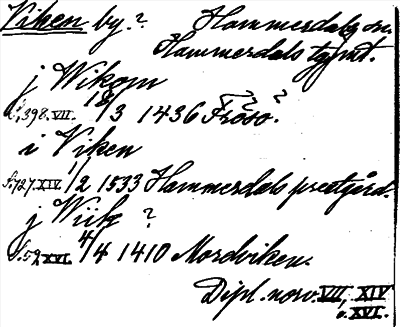 Viken by? Hammerdals sn.
Hammerdals tgsmt.
j Wikom
S. 398. VII. 18/3 1436 Frösö. ?
i Viken
S. 727. XIV. 1/2 1533 Hammerdals prestgård.
j Wiik ?
S. 59 XVI. 4/4 1410 Nordviken.
Dipl. norv. VII, XIV
o. XVI.